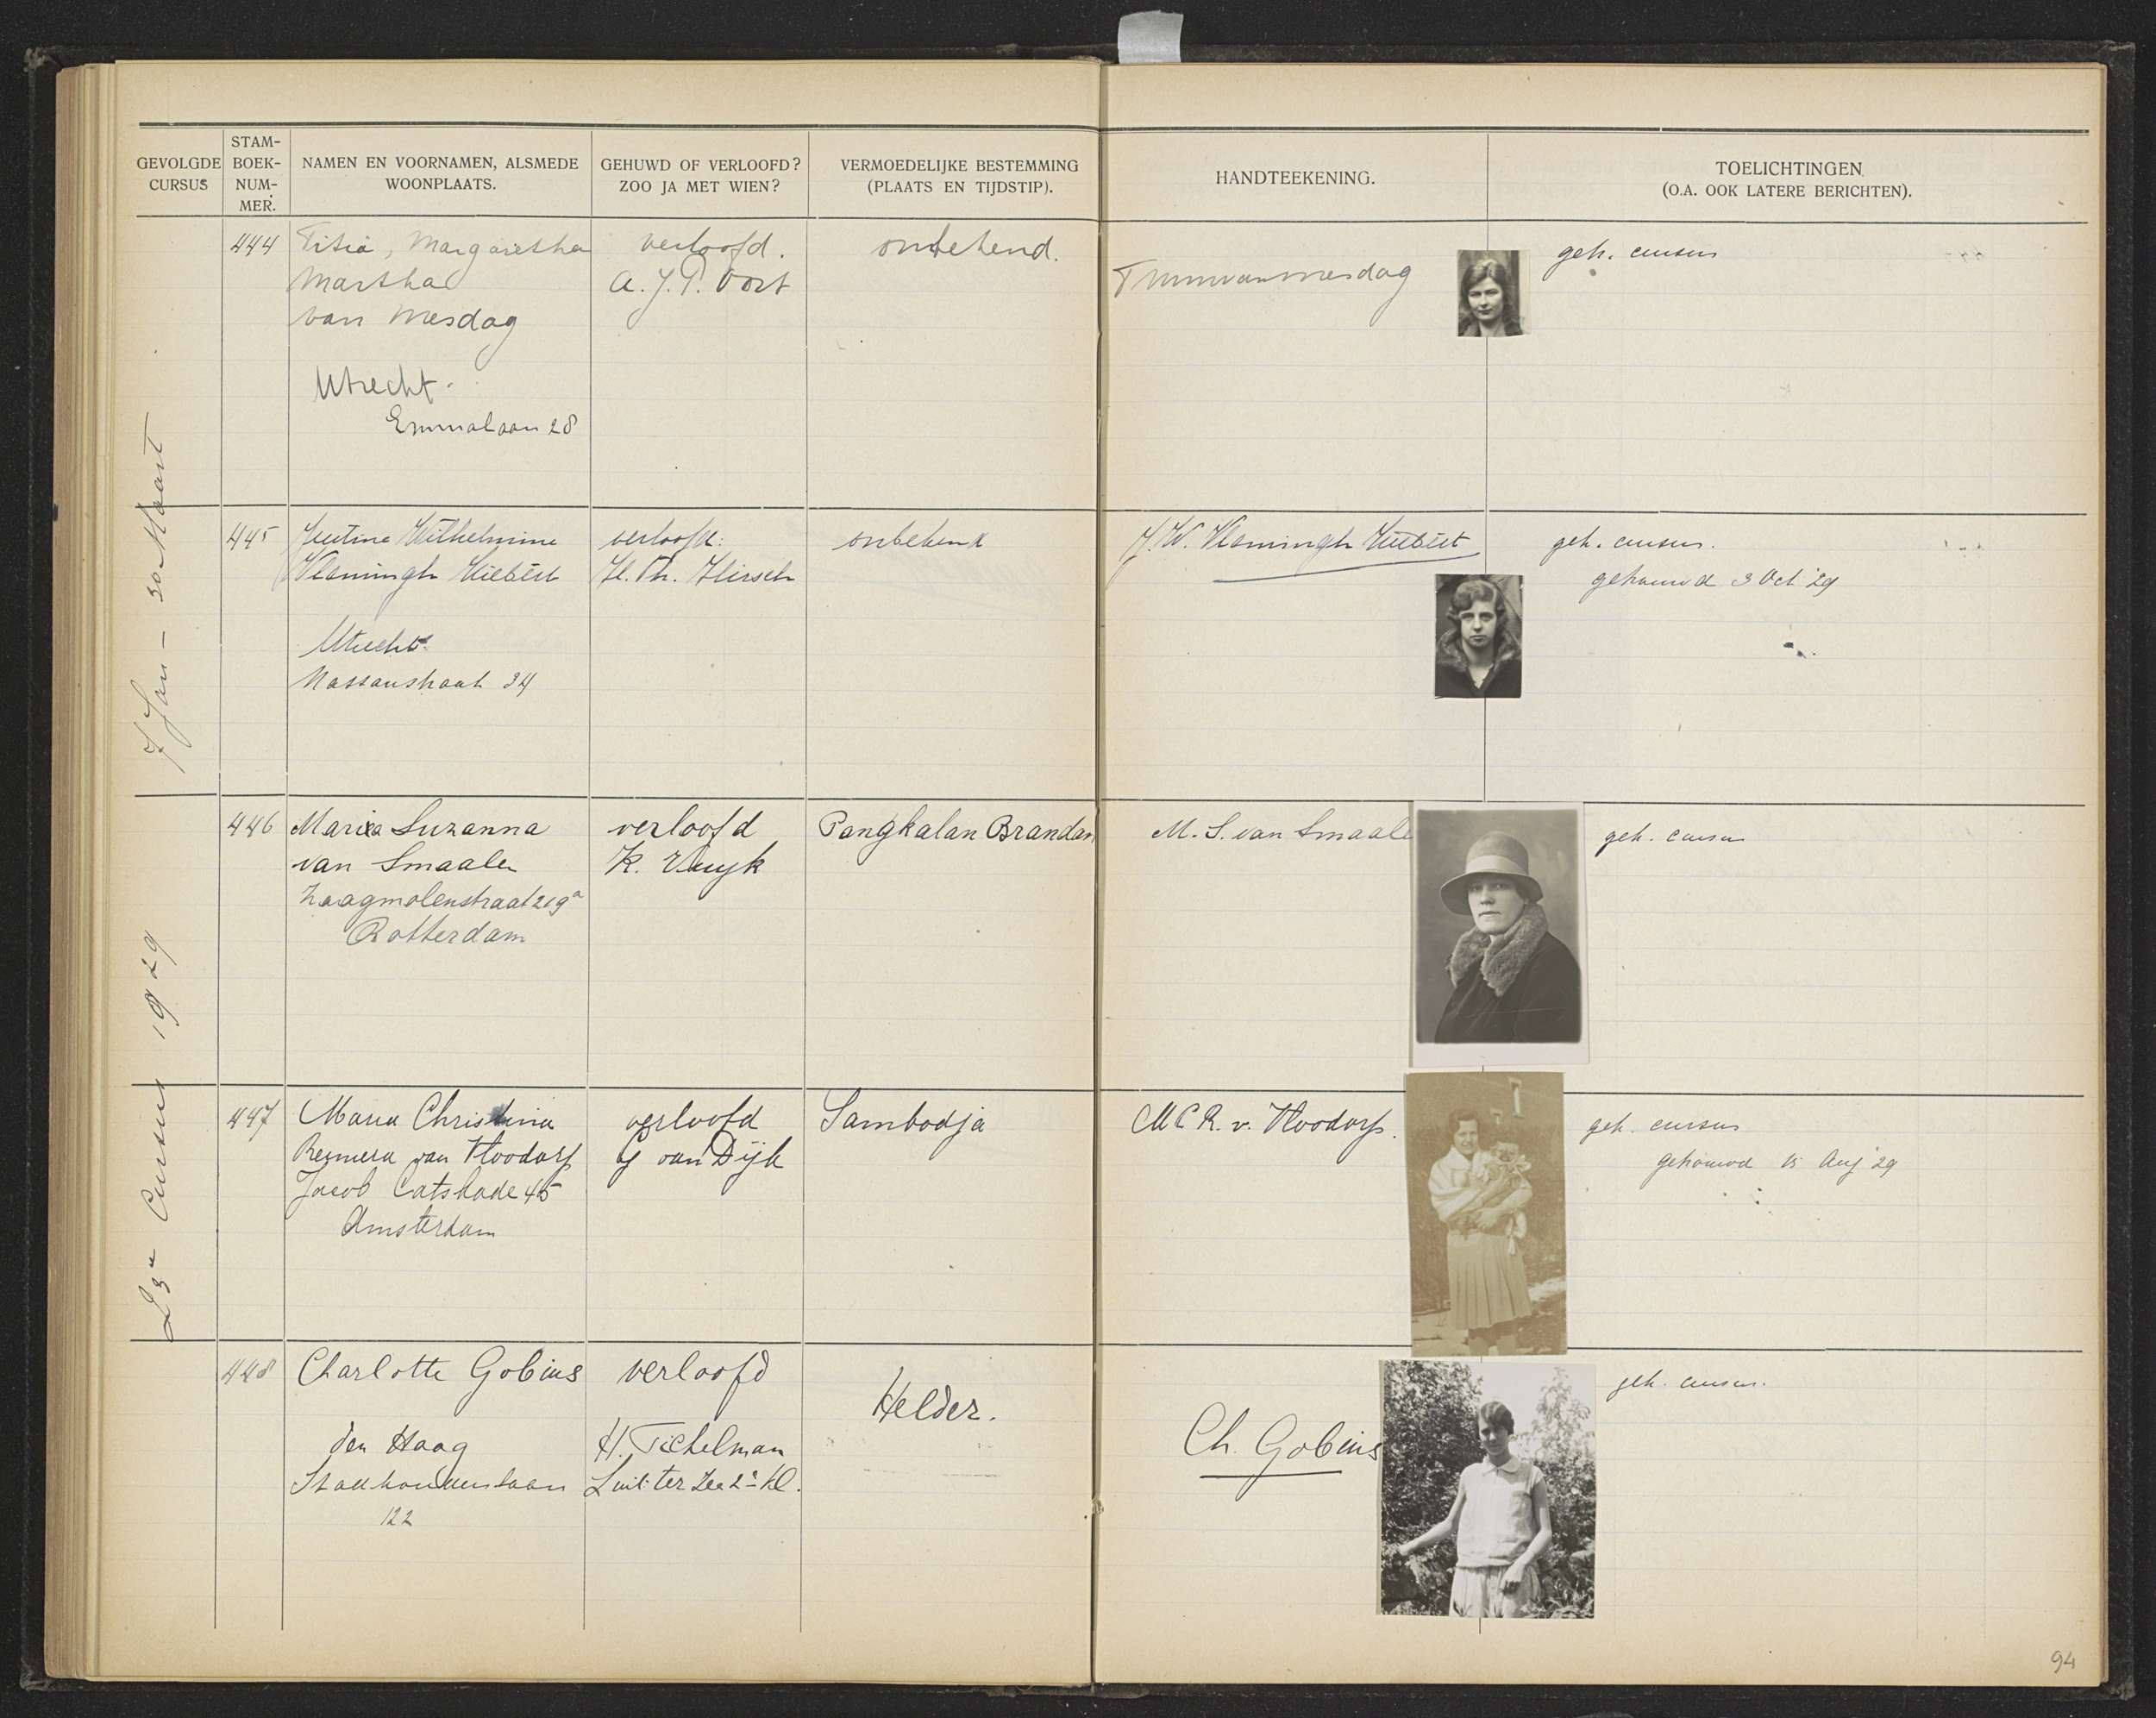 GEVOLGDE
CURSUS
STAM-
BOEK-
NUM-
MER.
NAMEN EN VOORNAMEN, ALSMEDE
WOONPLAATS.
GEHUWD OF VERLOOFD?
ZOO JA MET WIEN?
VERMOEDELIJKE BESTEMMING
(PLAATS EN TIJDSTIP).
HANDTEEKENING.
TOELICHTINGEN
(O.A. OOK LATERE BERICHTEN).
23e Cursus 1929
7 Jan - 30 Maart
444
Titia, Margaretha
Martha
van Mesdag
Utrecht.
Emmalaan 28
verloofd.
A. J. P. Oort
onbekend.
TMMvanMesdag
geh. cursus
445
Wilhelmine
Vlamingh
Utrecht.
Nassaustraat 34
verloofd:
H. Th. Hirsch
onbekend
J. W. Vlamingh
geh. cursus.
gehouwd 3 Oct '29
446
Maria Suzanna
van Smaalen
Zaagmolenstraat 219a
Rotterdam
verloofd
K. Vuyk
Pangkalan Brandan
M. S. van Smaale
geh. cursus
447
Maria Christina
Reimera van Vloodorp
Jacob Catskade 45
Amsterdam
verloofd
G van Dijk
Sambodja
M C R. v. Vloodorp.
geh. cursus
gehouwd 15 Aug '29
448
Charlotte Gobius
den Haag
Stadhouderslaan
122
verloofd
H. Tichelman
Luit. ter Zee 2e Kl.
Helder.
Ch. Gobius
geh. cursus.
94